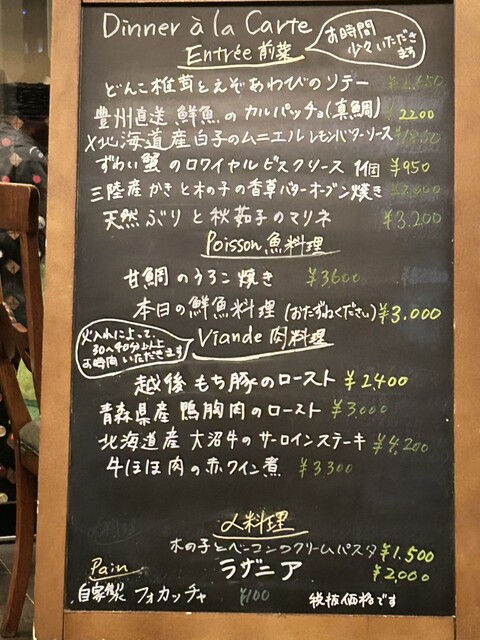 Dinner à la Carte
Entrée 前菜
お時間
少々いただき
ます
どんこ椎茸とえぞあわびのソテー
豊州直送 鮮魚のカルパッチョ(真鯛) ¥2200
X北海道産白子のムニエル レモンバターソース
ずわい蟹のロワイヤルビスクソース 1個 ¥950
三陸産かきと木の子の香草バターオーブン焼き
天然ぶりと秋茄子のマリネ ¥3.200
Poisson 魚料理
甘鯛のうろこ焼き ¥3600
本日の鮮魚料理(おたずねください) ¥3.000
火入れによって、
30〜40分以上
お時間いただきます
Viande 肉料理
越後もち豚のロースト ¥2,400
青森県産 鴨胸肉のロースト ¥3,000
北海道産 大沼牛のサーロインステーキ ¥4,200
牛ほほ肉の赤ワイン煮 ¥3300
〆料理
木の子とベーコンのクリームパスタ ¥1.500
ラザニア ¥2,000
Pain
自家製 フォカッチャ ¥100
税抜価格です